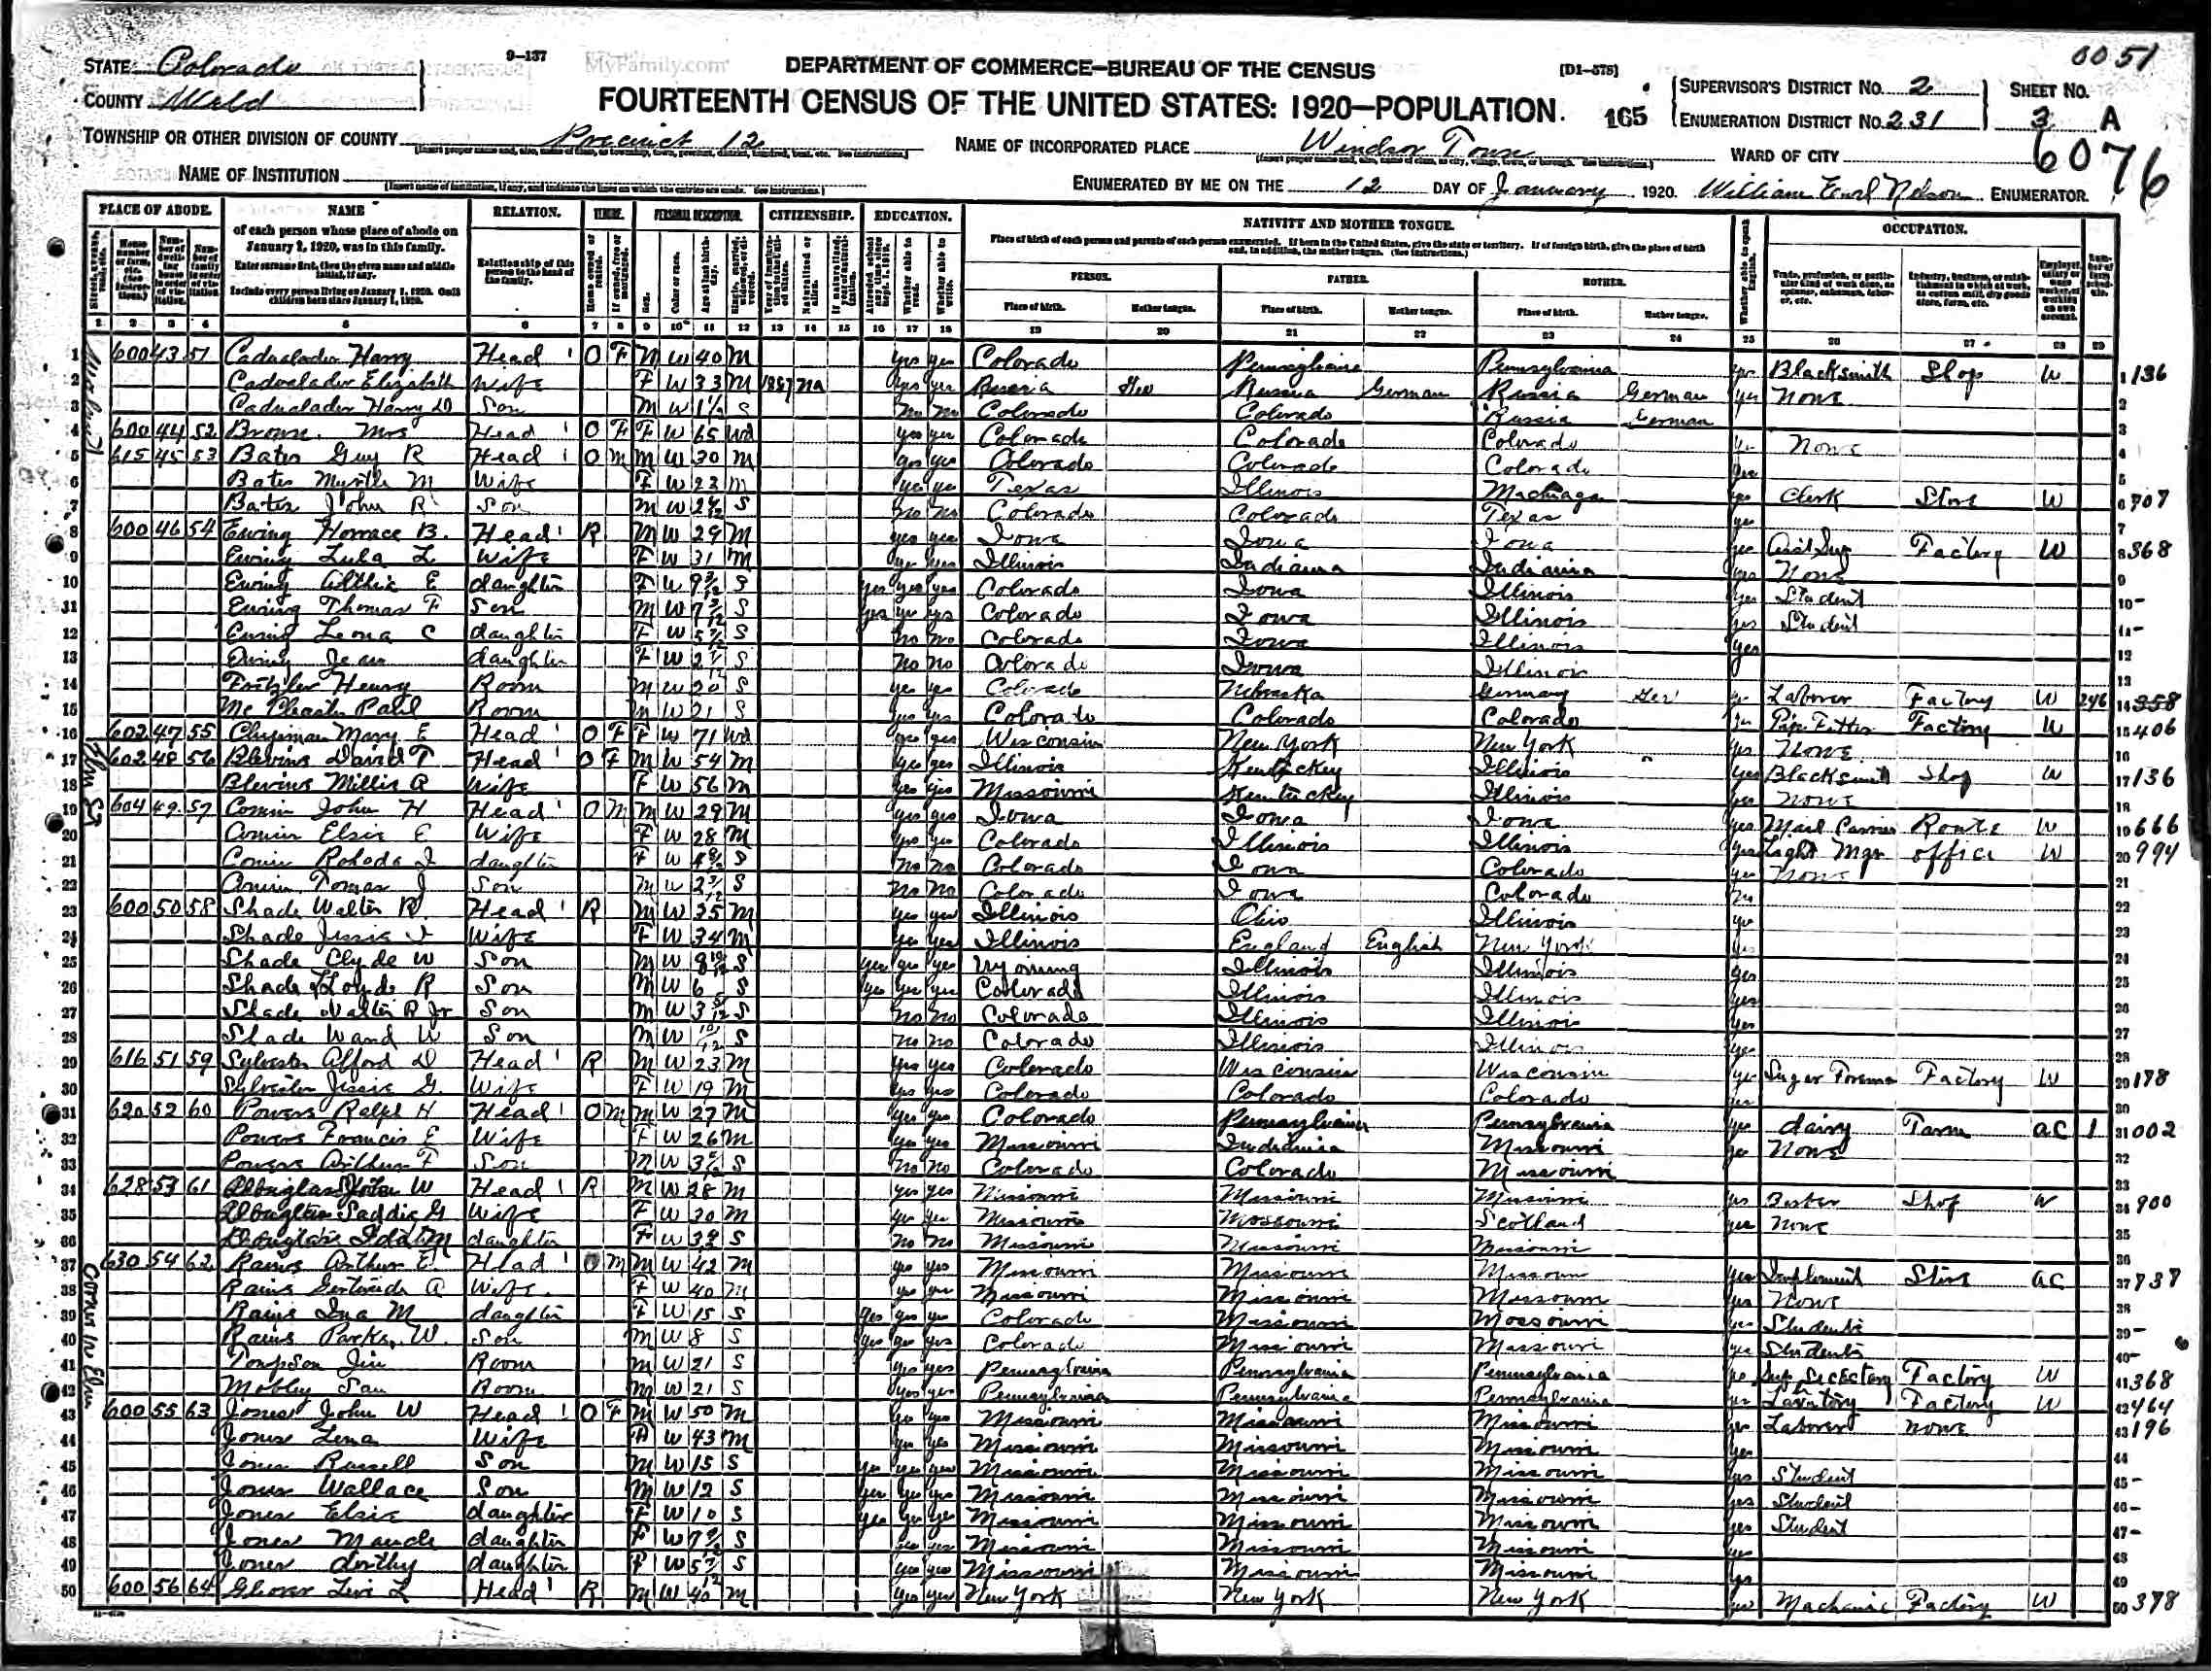 0051
STATE Colorado
9-137
MyFamily.com
DEPARTMENT OF COMMERCE—BUREAU OF THE CENSUS
[D1-578]
COUNTY Weld
FOURTEENTH CENSUS OF THE UNITED STATES: 1920—POPULATION.
165
SUPERVISOR'S DISTRICT No. 2
SHEET No.
ENUMERATION DISTRICT No. 231
3 A
6076
TOWNSHIP OR OTHER DIVISION OF COUNTY Precinct 12
NAME OF INCORPORATED PLACE Windsor Town
WARD OF CITY
NAME OF INSTITUTION
ENUMERATED BY ME ON THE 12 DAY OF January, 1920. William Earl Nelson ENUMERATOR.
PLACE OF ABODE. NAME RELATION. TENURE. PERSONAL DESCRIPTION. CITIZENSHIP. EDUCATION. NATIVITY AND MOTHER TONGUE. OCCUPATION.
of each person whose place of abode on January 1, 1920, was in this family.
Enter surname first, then the given name and middle initial, if any.
Include every person living on January 1, 1920. Omit children born since January 1, 1920.
Relationship of this person to the head of the family.
Place of birth of each person and parents of each person enumerated. If born in the United States, give the state or territory. If of foreign birth, give the place of birth and, in addition, the mother tongue. (See instructions.)
PERSON. FATHER. MOTHER.
Place of birth. Mother tongue. Place of birth. Mother tongue. Place of birth. Mother tongue.
1 2 3 4 5 6 7 8 9 10 11 12 13 14 15 16 17 18 19 20 21 22 23 24 25 26 27 28 29
1 600 43 51 Cadwalader Harry Head O F M W 40 M yes yes Colorado Pennsylvania Pennsylvania yes Blacksmith Shop W 1 136
2 Cadwalader Elizabeth Wife F W 33 M 1887 na yes yes Russia Ger Russia German Russia German yes None 2
3 Cadwalader Harry D Son M W 1 S no no Colorado Colorado Russia German 3
4 600 44 52 Brown Mrs Head O F F W 65 Wd yes yes Colorado Colorado Colorado yes None 4
5 615 45 53 Bates Guy R Head O M M W 30 M yes yes Colorado Colorado Colorado yes 5
6 Bates Myrtle M Wife F W 23 M yes yes Texas Illinois yes Clerk Store W 6 707
7 Bates John R Son M W 2 S no no Colorado Colorado Texas yes 7
8 600 46 54 Ewing Horrace B. Head R M W 29 M yes yes Iowa Iowa Iowa yes Factory W 8 368
9 Ewing Lula L Wife F W 31 M yes yes Illinois Indiana Indiana yes None 9
10 Ewing E daughter F W 9 S yes yes yes Colorado Iowa Illinois yes Student 10-
11 Ewing Thomas F Son M W 7 S yes yes yes Colorado Iowa Illinois yes Student 11-
12 Ewing Leona C daughter F W 5 S no no Colorado Iowa Illinois yes 12
13 Ewing Jean daughter F W 2 S no no Colorado Iowa Illinois 13
14 Fritzler Henry Room M W 20 S yes yes Colorado Nebraska Germany Ger yes Laborer Factory W 246 14 358
15 Paul Room M W 21 S yes yes Colorado Colorado Colorado yes Pipe Fitter Factory W 15 406
16 602 47 55 Chapman Mary E Head O F F W 71 Wd yes yes Wisconsin New York New York yes None 16
17 602 48 56 Blevins David T Head O F M W 54 M yes yes Illinois Kentuckey Illinois yes Blacksmith Shop W 17 136
18 Blevins Millie A Wife F W 56 M yes yes Missouri Kentuckey Illinois yes None 18
19 604 49 57 Comin John H Head O M M W 29 M yes yes Iowa Iowa Iowa yes Mail Carrier Route W 19 666
20 Comin Elsie E Wife F W 28 M yes yes Colorado Illinois Illinois yes Light Mgr office W 20 994
21 Comin Rohoda I daughter F W 4 S no no Colorado Iowa Colorado yes None 21
22 Comin Tomas J Son M W 2 S no no Colorado Iowa Colorado no 22
23 600 50 58 Shade Walter R. Head R M W 35 M yes yes Illinois Ohio Illinois yes 23
24 Shade Jessie I Wife F W 34 M yes yes Illinois England English New York yes 24
25 Shade Clyde W Son M W 8 S yes yes yes Wyoming Illinois Illinois yes 25
26 Shade Floyde R Son M W 6 S yes yes yes Colorado Illinois Illinois yes 26
27 Shade Walter R Jr Son M W 3 S no no Colorado Illinois Illinois yes 27
28 Shade Wand W Son M W S no no Colorado Illinois Illinois yes 28
29 616 51 59 Sylvester Alford D Head R M W 23 M yes yes Colorado Wisconsin Wisconsin yes Sugar Foreman Factory W 29 178
30 Sylvester Jessie G. Wife F W 19 M yes yes Colorado Colorado Colorado yes 30
31 620 52 60 Powers Ralph H Head O M M W 27 M yes yes Colorado Pennsylvania Pennsylvania yes dairy Farm ac 1 31 002
32 Powers Francis E Wife F W 26 M yes yes Missouri Indiania Missouri yes None 32
33 Powers Arthur F Son M W 3 S no no Colorado Colorado Missouri 33
34 628 53 61 Douglas John W Head R M W 28 M yes yes Missouri Missouri Missouri yes Barber Shop W 34 900
35 Saddie G Wife F W 30 M yes yes Missouri Mossouri Scotland yes None 35
36 Ida M daughter F W 3 S no no Missouri Missouri Missouri 36
37 630 54 62 Rains Arthur E. Head O M M W 42 M yes yes Missouri Missouri Missouri yes Implement Store ac 37 737
38 Rains Gertrude A Wife F W 40 M yes yes Missouri Missouri Missouri yes None 38
39 Rains Ina M daughter F W 15 S yes yes yes Colorado Missouri Mossouri yes Students 39-
40 Rains Parks W. Son M W 8 S yes yes yes Colorado Missouri Missouri yes Students 40-
41 Tompson Jim Room M W 21 S yes yes Pennsylvania Pennsylvania Pennsylvania yes Factory W 41 368
42 Mobley Sam Room M W 21 S yes yes Pennsylvania Pennsylvania Pennsylvania yes Factory W 42 464
43 600 55 63 Jones John W Head O F M W 50 M yes yes Missouri Missouri Missouri yes Laborer none 43 196
44 Jones Lena Wife W 43 M yes yes Missouri Missouri Missouri yes 44
45 Jones Russell Son M W 15 S yes yes yes Missouri Missouri Missouri yes Student 45-
46 Jones Wallace Son M W 12 S yes yes yes Missouri Missouri Missouri yes Student 46-
47 Jones Elsie daughter F W 10 S yes yes yes Missouri Missouri Missouri yes Student 47-
48 Jones Maude daughter F W 7 S yes yes Missouri Missouri Missouri yes 48
49 Jones dorthy daughter F W 5 S yes yes Missouri Missouri Missouri yes 49
50 600 56 64 Glover Levi L Head R M W 40 M yes yes New York New York New York yes Machanic Factory W 50 378
Elm St
Corner in Elm